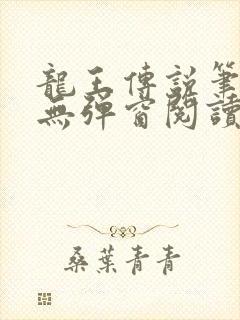 龍王傳說筆
無彈窗閱讀
桑葉青青